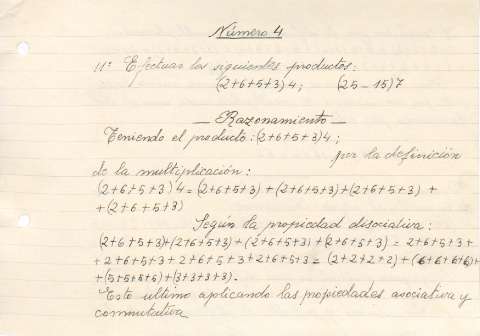 Número 4
11º Efectuar los siguientes productos:
(2+6+5+3)4; (25-15)7
Razonamiento
Teniendo el producto: (2+6+5+3)4;
por la definición
de la multiplicación:
(2+6+5+3)4=(2+6+5+3)+(2+6+5+3)+(2+6+5+3)+
+(2+6+5+3)
Según la propiedad disociativa:
(2+6+5+3)+(2+6+5+3)+(2+6+5+3)+(2+6+5+3)=2+6+5+3+
+2+6+5+3+2+6+5+3+2+6+5+3=(2+2+2+2)+(6+6+6+6)+
+(5+5+5+5)+(3+3+3+3).
Esto ultimo aplicando las propiedades asociativa y
conmutativa